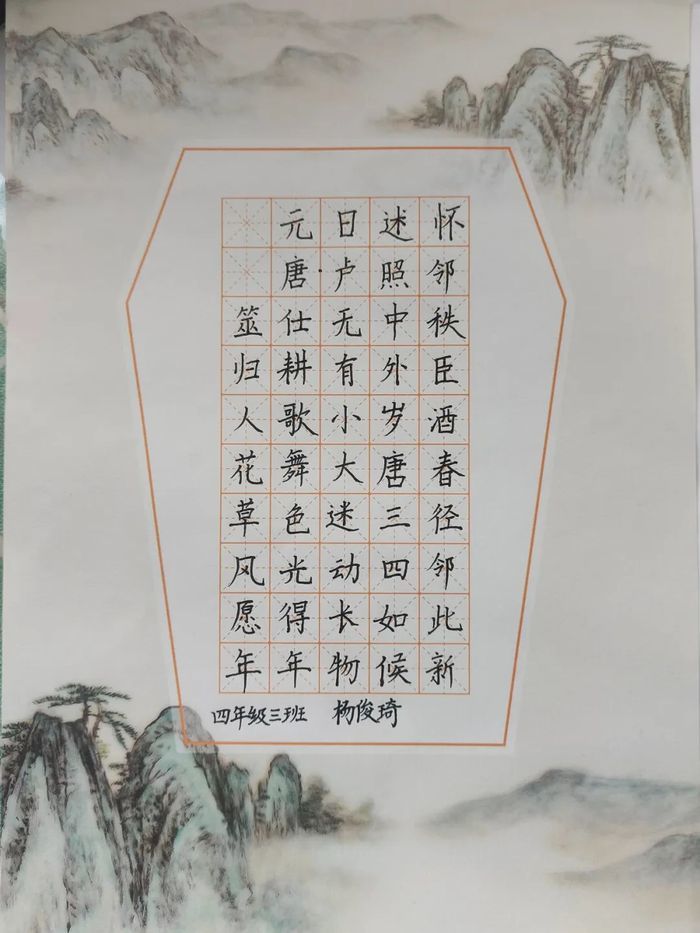 元日述怀
唐·卢照邻
筮仕无中秩
归耕有外臣
人歌小岁酒
花舞大唐春
草色迷三径
风光动四邻
愿得长如此
年年物候新
四年级三班 杨俊琦